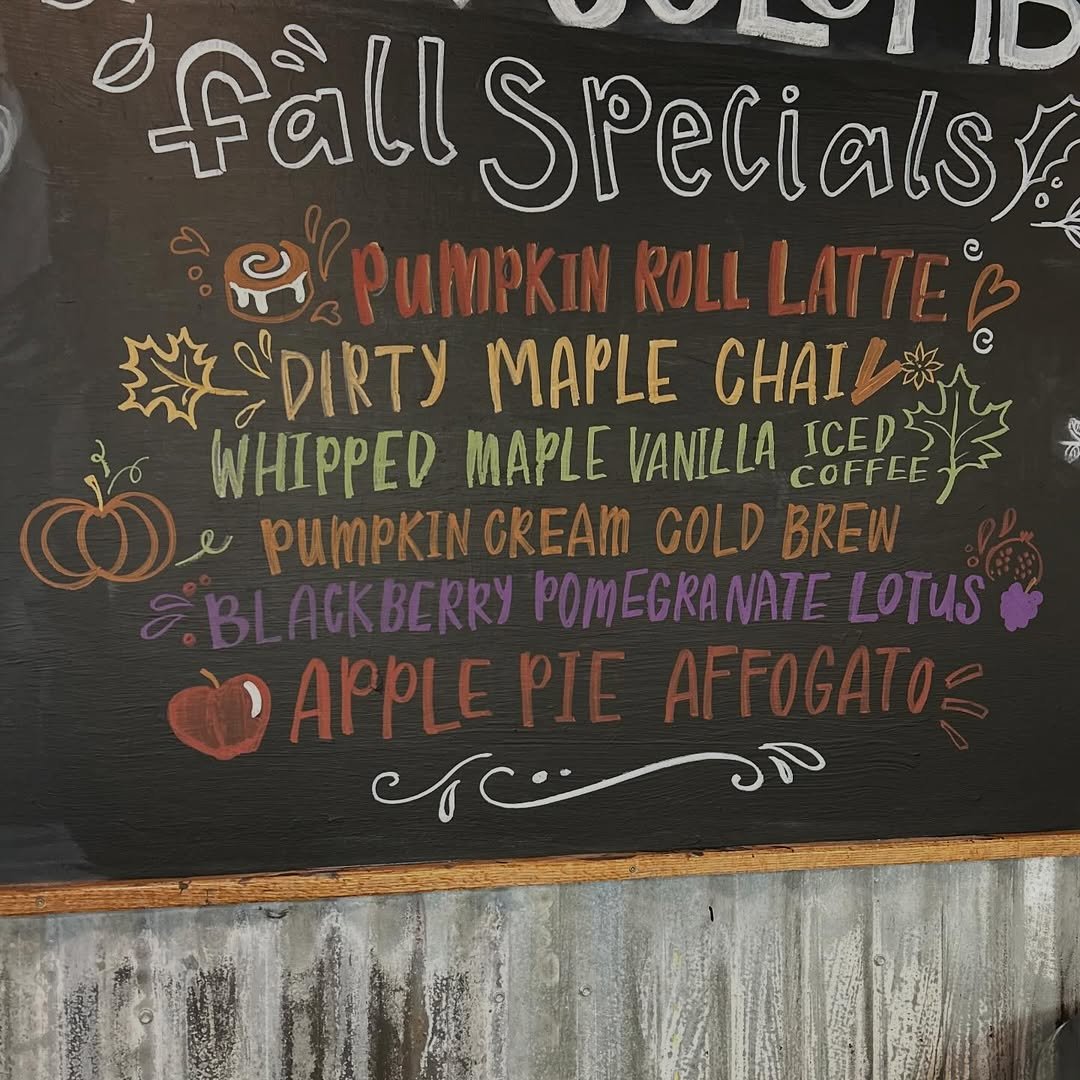 fall Specials
PUMPKIN ROLL LATTE
DIRTY MAPLE CHAI
WHIPPED MAPLE VANILLA ICED COFFEE
PUMPKIN CREAM COLD BREW
BLACKBERRY POMEGRANATE LOTUS
APPLE PIE AFFOGATO